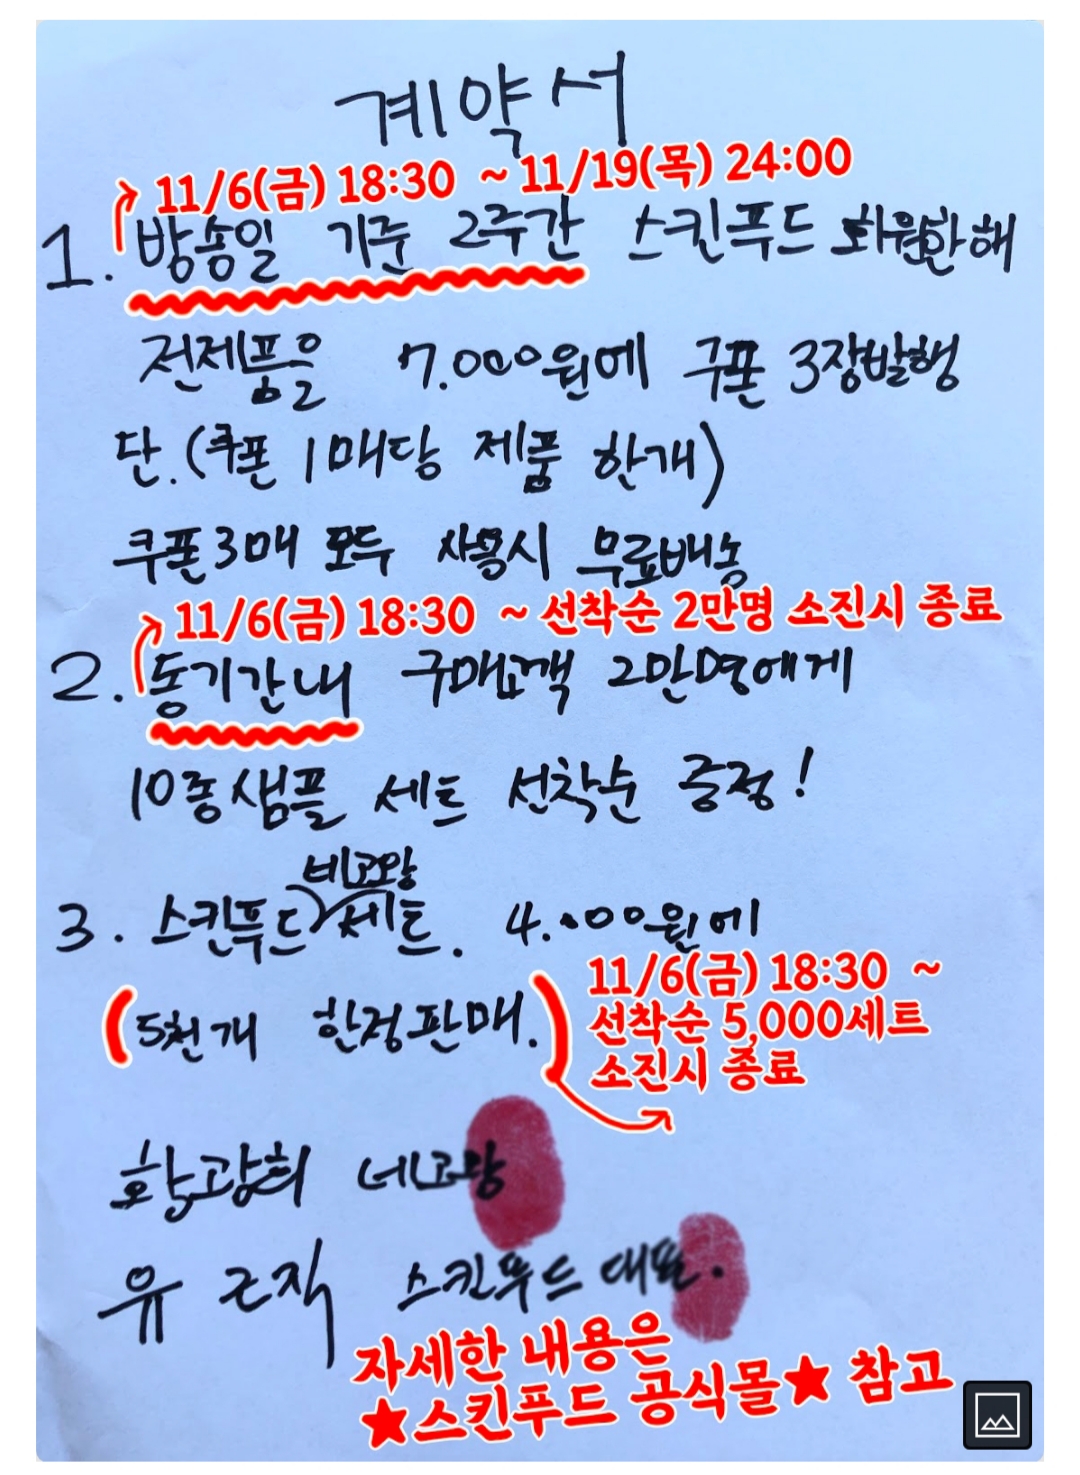 계약서
11/6(금) 18:30 ~ 11/19(목) 24:00
1. 방송일 기준 2주간 스킨푸드 회원한해
전제품을 7.000원에 쿠폰 3장발행
단.(쿠폰 1매당 제품 한개)
쿠폰3매 모두 사용시 무료배송
11/6(금) 18:30 ~ 선착순 2만명 소진시 종료
2. 동기간내 구매고객 2만명에게
10종샘플 세트 선착순 증정!
네고왕
3. 스킨푸드 세트. 4.000원에
11/6(금) 18:30 ~
(5천개 한정판매.)
선착순 5,000세트
소진시 종료
황광희 네고왕
유근직 스킨푸드 대표.
자세한 내용은
★스킨푸드 공식몰★ 참고